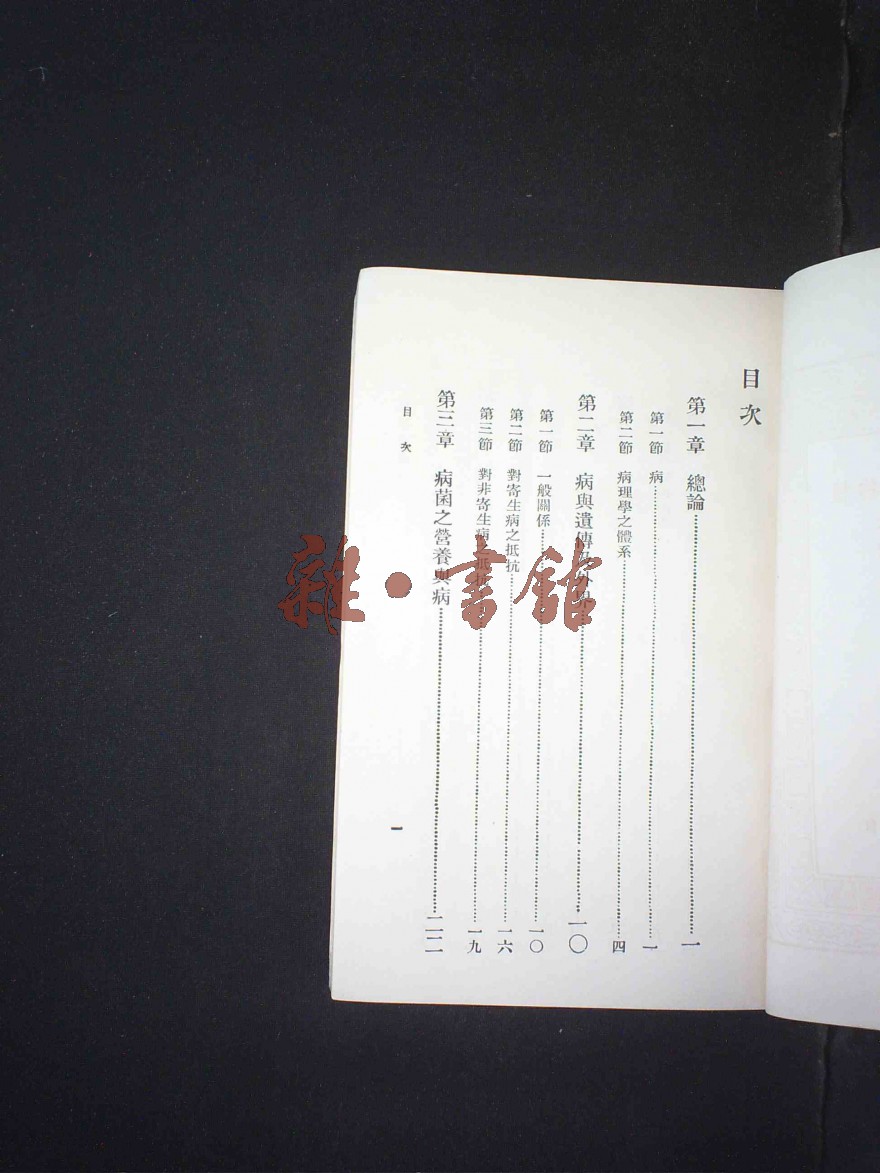 目次
第一章 總論……一
第一節 病……一
第二節 病理學之體系……四
第二章 病與遺傳及外界……一〇
第一節 一般關係……一〇
第二節 對寄生病之抵抗……一六
第三節 對非寄生病之抵抗……一九
第三章 病菌之營養與病……二二
目次
一
雜·書館